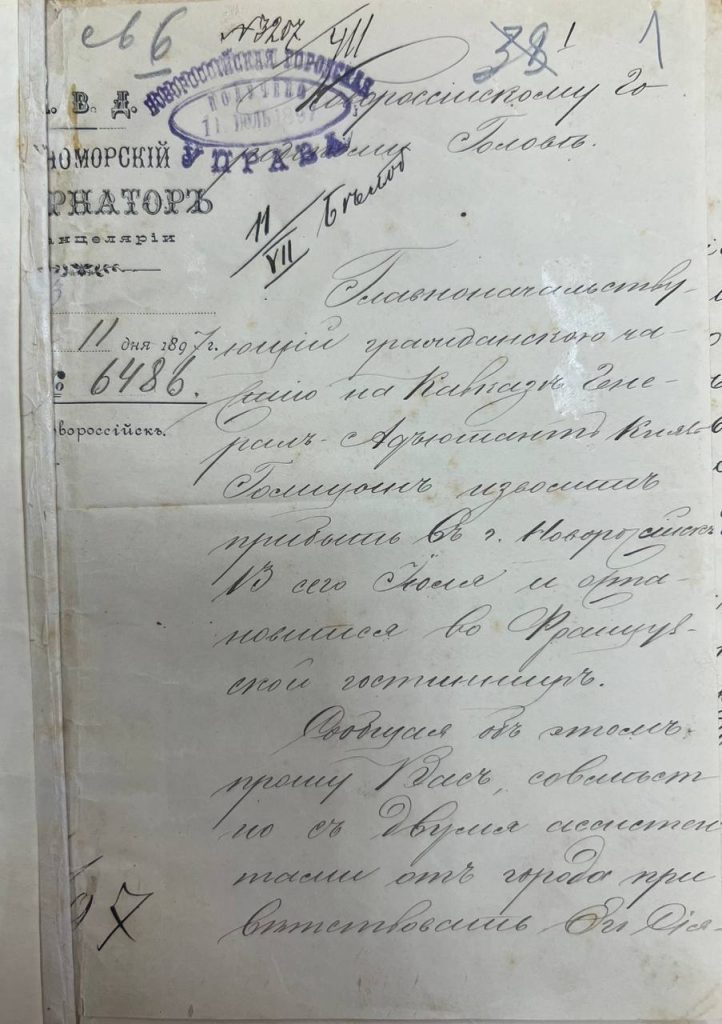 св 6
№3207
411
38 1
1
НОВОРОССІЙСКАЯ ГОРОДСКАЯ
ПОЛУЧЕНО
11 ІЮЛЬ 1897
УПРАВА
. В. Д.
НОМОРСКІЙ
РНАТОРЪ
нцеляріи
11 дня 1897 г.
№ 6486.
вороссійскъ.
Новороссійскому Го
родскому Головѣ.
11/VII
Главноначальству-
ющій гражданскою ча-
стію на Кавказѣ Гене-
ралъ-Адъютантъ Князь
Голицынъ изволитъ
прибыть въ г. Новороссійскъ
13 сего Іюля и оста-
новится во Француз-
ской гостинницѣ.
Сообщая объ этомъ,
прошу Васъ, совмѣст
но съ двумя ассистен
тами отъ города при
вѣтствовать Его Сія-